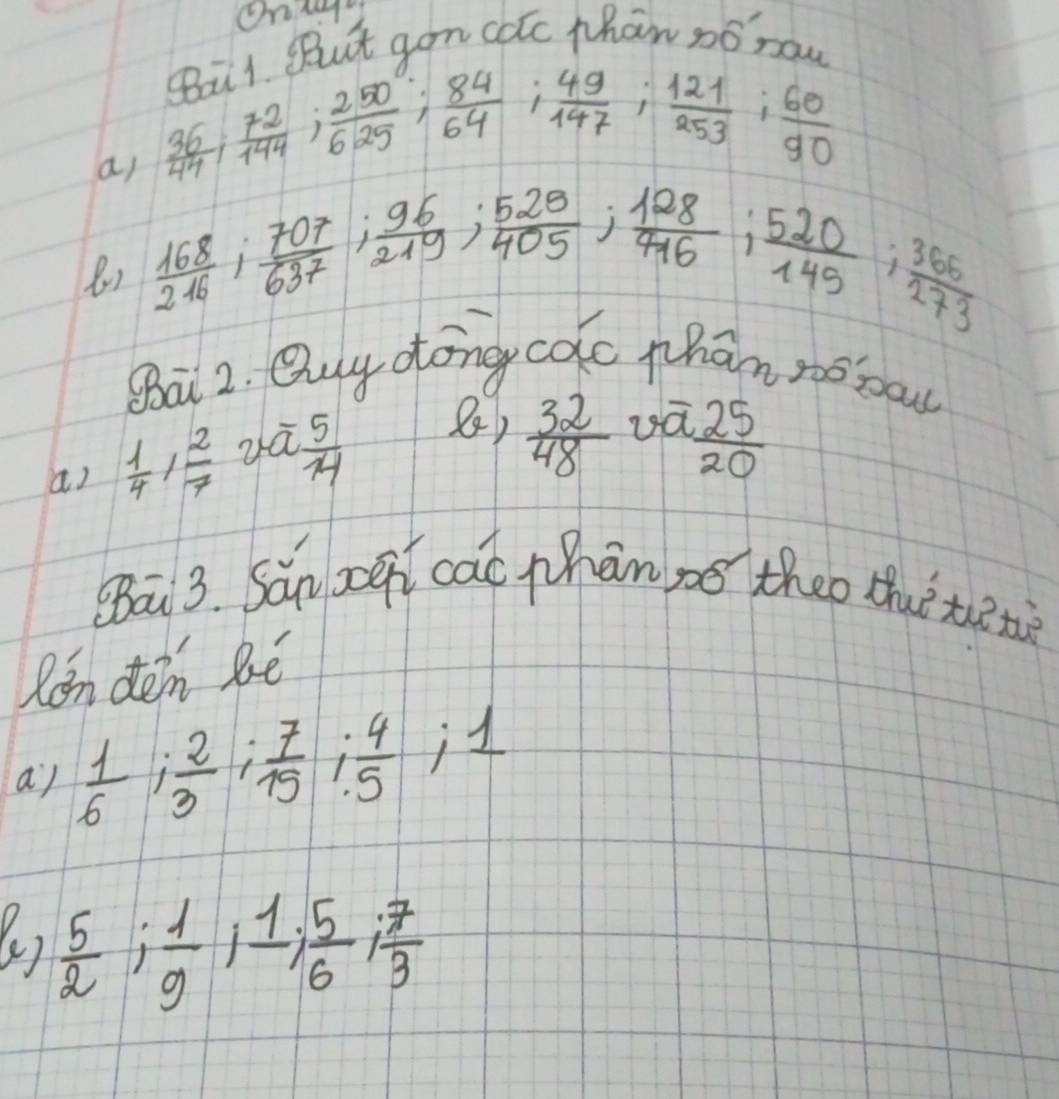 Ôn tập
Bài 1. Rút gọn các phân số sau
a) 36/44 ; 72/144 ; 250/625 ; 84/64 ; 49/147 ; 121/253 ; 60/90
b) 168/216 ; 707/637 ; 96/219 ; 520/405 ; 128/416 ; 520/145 ; 366/273
Bài 2. Quy đồng các phân số sau
a) 1/4 , 2/7 và 5/14 b) 32/48 và 25/20
Bài 3. Sắp xếp các phân số theo thứ tự từ
lớn đến bé
a) 1/6 ; 2/3 ; 7/15 ; 4/5 ; 1
b) 5/2 ; 1/9 ; 1 ; 5/6 ; 7/3